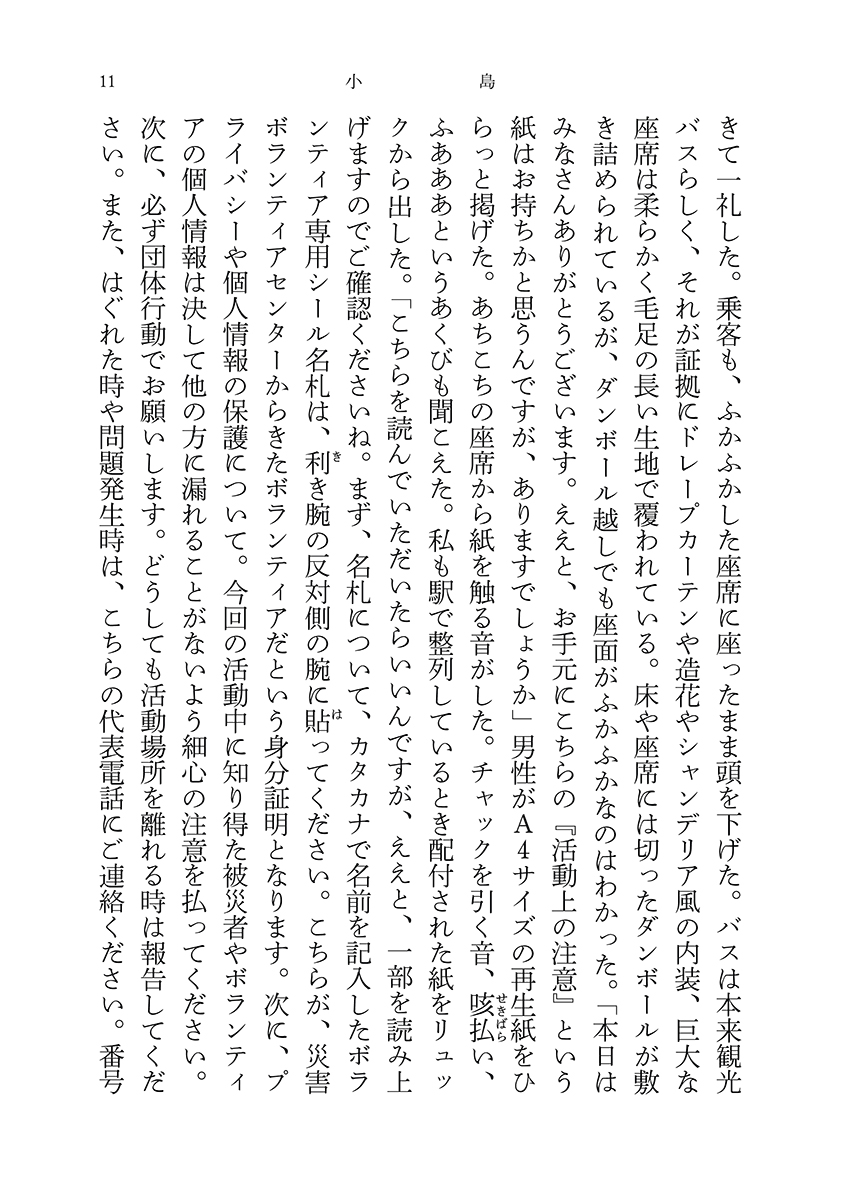 11
小島
きて一礼した。乗客も、ふかふかした座席に座ったまま頭を下げた。バスは本来観光
バスらしく、それが証拠にドレープカーテンや造花やシャンデリア風の内装、巨大な
座席は柔らかく毛足の長い生地で覆われている。床や座席には切ったダンボールが敷
き詰められているが、ダンボール越しでも座面がふかふかなのはわかった。「本日は
みなさんありがとうございます。ええと、お手元にこちらの『活動上の注意』という
紙はお持ちかと思うんですが、ありますでしょうか」男性がA4サイズの再生紙をひ
らっと掲げた。あちこちの座席から紙を触る音がした。チャックを引く音、咳払い、
せきばら
ふあああというあくびも聞こえた。私も駅で整列しているとき配付された紙をリュッ
クから出した。「こちらを読んでいただいたらいいんですが、ええと、一部を読み上
げますのでご確認くださいね。まず、名札について、カタカナで名前を記入したボラ
ンティア専用シール名札は、利き腕の反対側の腕に貼ってください。こちらが、災害
き
は
ボランティアセンターからきたボランティアだという身分証明となります。次に、プ
ライバシーや個人情報の保護について。今回の活動中に知り得た被災者やボランティ
アの個人情報は決して他の方に漏れることがないよう細心の注意を払ってください。
次に、必ず団体行動でお願いします。どうしても活動場所を離れる時は報告してくだ
さい。また、はぐれた時や問題発生時は、こちらの代表電話にご連絡ください。番号